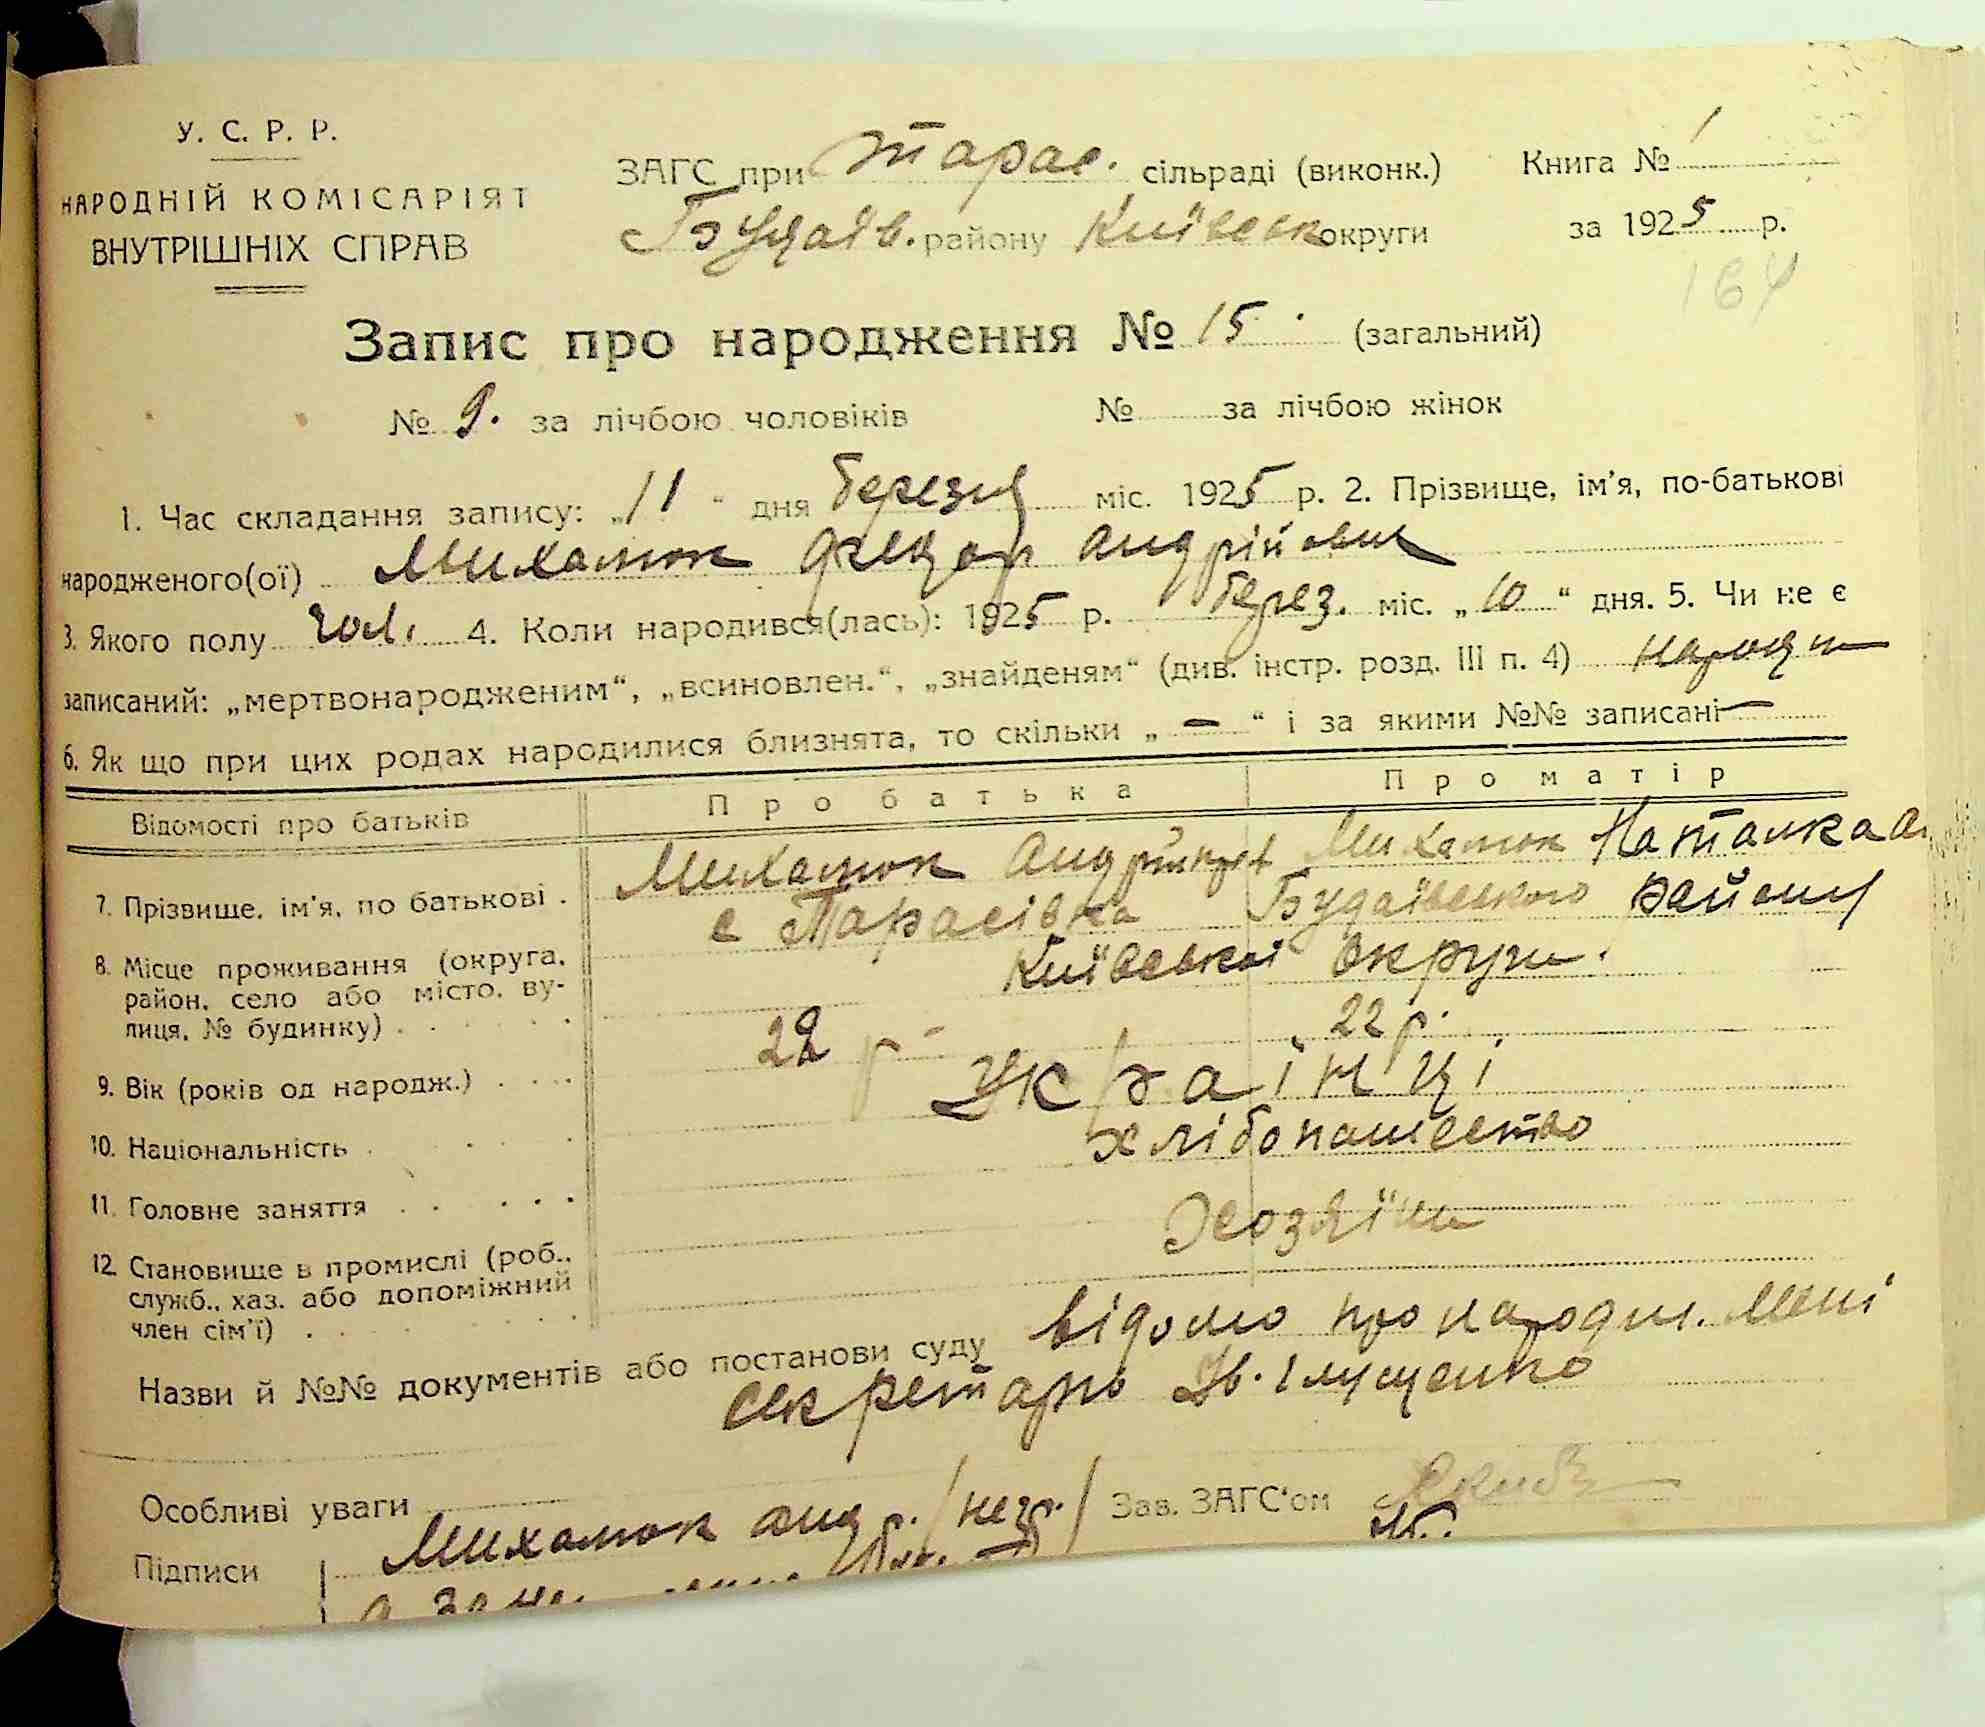 У. С. Р. Р.
НАРОДНІЙ КОМІСАРІЯТ
ВНУТРІШНІХ СПРАВ
ЗАГС при Тарас. сільраді (виконк.)
Будаїв. району Київськ округи
Книга № 1
за 1925 р.
164
Запис про народження № 15. (загальний)
№ 9. за лічбою чоловіків № за лічбою жінок
1. Час складання запису: „11" дня березня міс. 1925 р. 2. Прізвище, ім'я, по-батькові
народженого(ої) Михалюк Федор Андрійович
3. Якого полу чол. 4. Коли народився(лась): 1925 р. берез. міс. „10" дня. 5. Чи не є
записаний: „мертвонародженим", „всиновлен.", „знайденям" (див. інстр. розд. III п. 4) народж
6. Як що при цих родах народилися близнята, то скільки „—" і за якими №№ записані —
Відомості про батьків Про батька Про матір
7. Прізвище, ім'я, по батькові . Михалюк Андрій Михалюк Наталка
8. Місце проживання (округа, район, село або місто, вулиця, № будинку) . с Тарасівка Будаївського району
Київської округи.
9. Вік (років од народж.) . 22 р. 22 р.
10. Національність . Українці
11. Головне заняття . хлібопашество
12. Становище в промислі (роб., служб., хаз. або допоміжний член сім'ї) . Хозяїни
Назви й №№ документів або постанови суду відомо про народж. мені
секретарь Ів. Ілущенко
Особливі уваги
Підписи Михалюк Анд р. /незр./ Зав. ЗАГС'ом